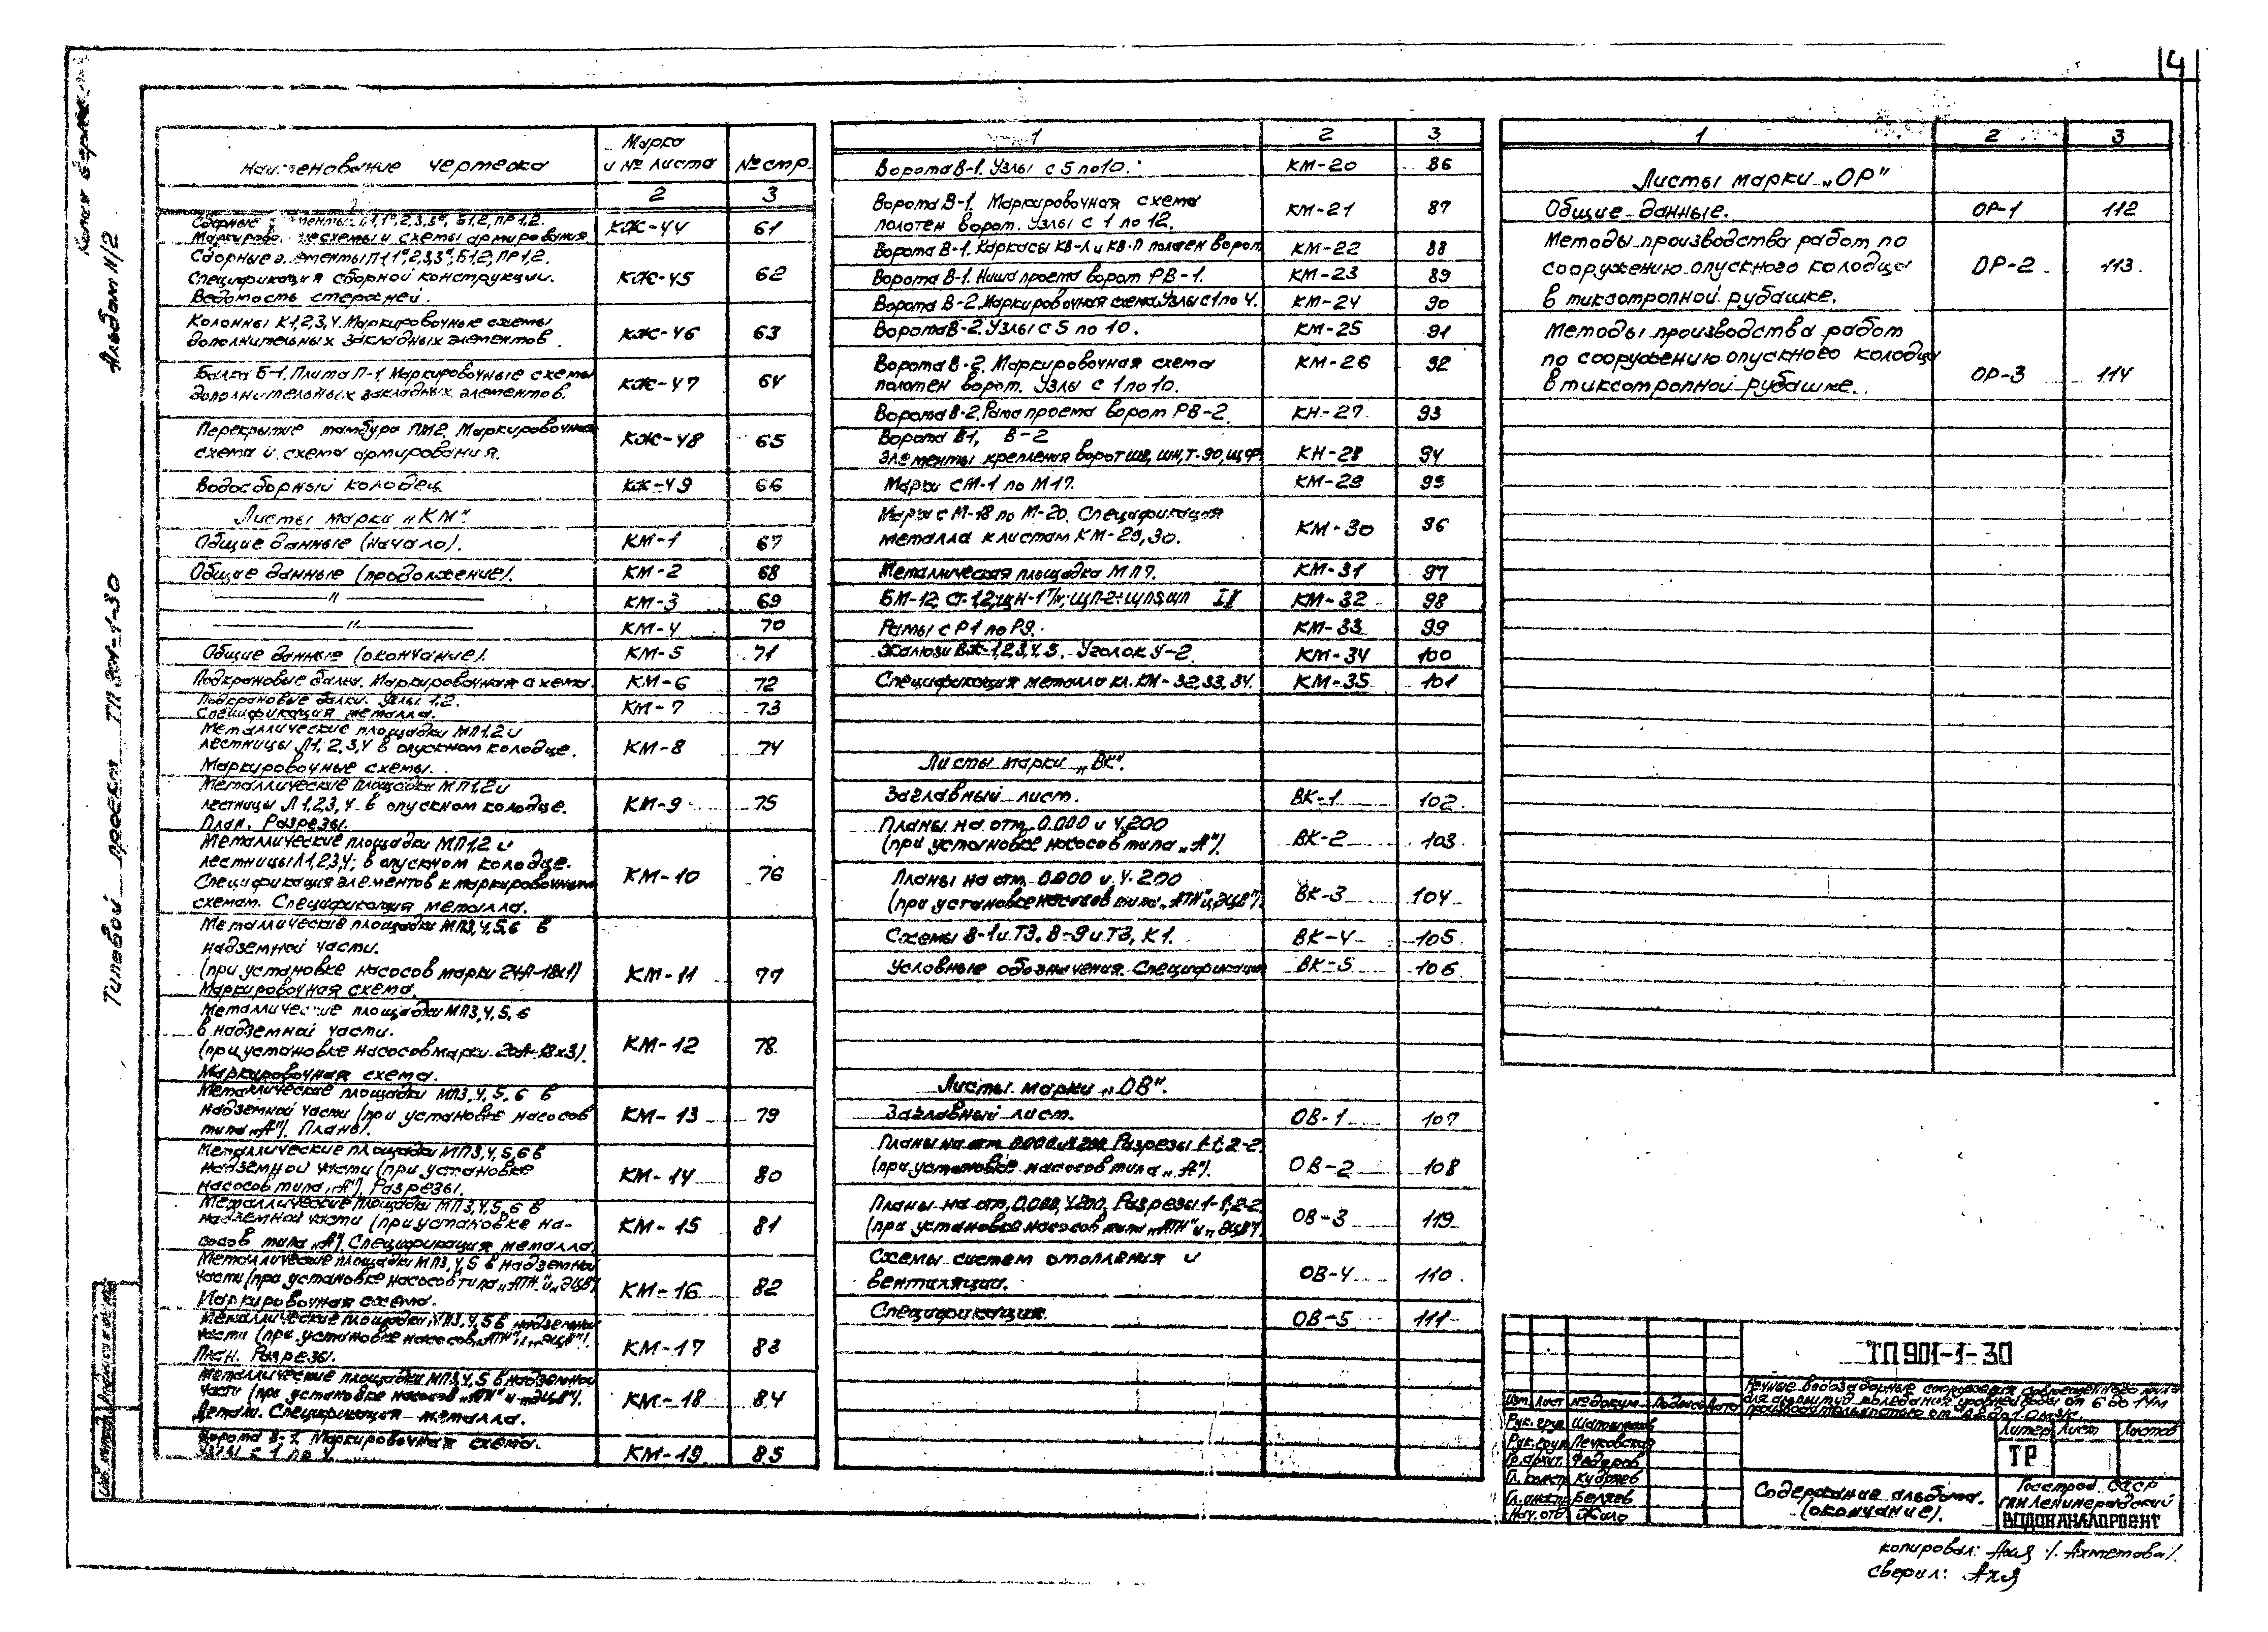 4
Альбом II/2
Типовой проект ТП 901-1-30
Наименование чертежа
Марка и № листа
№ стр.
2 3
Сборные элементы П1,1ᵃ,2,3,3ᵃ, Б1,2, ПР1,2.
схемы и схемы армирования КЖ-44 61
Сборные элементы П1,1ᵃ,2,3,3ᵃ, Б1,2, ПР1,2.
Спецификация сборной конструкции. КЖ-45 62
Ведомость стержней.
Колонны К1,2,3,4. Маркировочные схемы
дополнительных закладных элементов. КЖ-46 63
Балка Б-1. Плита П-1. Маркировочные схемы
дополнительных закладных элементов. КЖ-47 64
Перекрытие тамбура ПМ2. Маркировочная
схема и схема армирования. КЖ-48 65
Водосборный колодец КЖ-49 66
Листы марки „КМ".
Общие данные (начало). КМ-1 67
Общие данные (продолжение). КМ-2 68
—"— КМ-3 69
—"— КМ-4 70
Общие данные (окончание). КМ-5 71
Подкрановые балки. Маркировочная схема. КМ-6 72
Подкрановые балки. Узлы 1,2.
Спецификация металла. КМ-7 73
Металлические площадки МП1,2 и
лестницы Л1,2,3,4 в опускном колодце. КМ-8 74
Маркировочные схемы.
Металлические площадки МП1,2 и
лестницы Л1,2,3,4 в опускном колодце. КМ-9 75
План. Разрезы.
Металлические площадки МП1,2 и
лестницы Л1,2,3,4; в опускном колодце.
Спецификация элементов к маркировочным КМ-10 76
схемам. Спецификация металла.
Металлические площадки МП3,4,5,6 в
надземной части.
(при установке насосов марки 24А-18х1) КМ-11 77
Маркировочная схема.
Металлические площадки МП3,4,5,6
в надземной части.
(при установке насосов марки 20А-18х3). КМ-12 78
Маркировочная схема.
Металлические площадки МП3,4,5,6 в
надземной части (при установке насосов КМ-13 79
типа „А"). Планы.
Металлические площадки МП3,4,5,6 в
надземной части (при установке КМ-14 80
насосов типа „А"). Разрезы.
Металлические площадки МП3,4,5,6 в
надземной части (при установке на- КМ-15 81
сосов типа „А"). Спецификация металла.
Металлические площадки МП3,4,5 в надземной
части (при установке насосов типа „АТН" и „ЭЦВ") КМ-16 82
Маркировочная схема.
Металлические площадки МП3,4,5 в надземной
части (при установке насосов „АТН" и „ЭЦВ"). КМ-17 83
План. Разрезы.
Металлические площадки МП3,4,5 в надземной
части (при установке насосов „АТН" и „ЭЦВ"). КМ-18 84
Детали. Спецификация металла.
Ворота В-1. Маркировочная схема.
Узлы с 1 по 4. КМ-19 85
1 2 3
Ворота В-1. Узлы с 5 по 10. КМ-20 86
Ворота В-1. Маркировочная схема
полотен ворот. Узлы с 1 по 12. КМ-21 87
Ворота В-1. Каркасы КВ-Л и КВ-П полотен ворот КМ-22 88
Ворота В-1. Ниша проема ворот РВ-1. КМ-23 89
Ворота В-2. Маркировочная схема. Узлы с 1 по 4. КМ-24 90
Ворота В-2. Узлы с 5 по 10. КМ-25 91
Ворота В-2. Маркировочная схема КМ-26 92
полотен ворот. Узлы с 1 по 10.
Ворота В-2. Рама проема ворот РВ-2. КН-27 93
Ворота В1, В-2
элементы крепления ворот КН-28 94
Марки с М-1 по М17. КМ-29 95
Марки с М-18 по М-20. Спецификация
металла к листам КМ-29,30. КМ-30 96
Металлическая площадка МП7. КМ-31 97
КМ-32 98
Рамы с Р1 по Р9. КМ-33 99
Жалюзи ВЖ-1,2,3,4,5. Уголок У-2. КМ-34 100
Спецификация металла кл. КМ-32,33,34. КМ-35 101
Листы марки „ВК".
Заглавный лист. ВК-1 102
Планы на отм. 0.000 и 4.200
(при установке насосов типа „А"). ВК-2 103
Планы на отм. 0.000 и 4.200
(при установке насосов типа „АТН" и „ЭЦВ"). ВК-3 104
Схемы В-1 и Т3, В-9 и Т3, К1. ВК-4 105
Условные обозначения. Спецификация ВК-5 106
Листы марки „ОВ".
Заглавный лист. ОВ-1 107
Планы на отм. 0.000 и 4.200 Разрезы 1-1; 2-2.
(при установке насосов типа „А"). ОВ-2 108
Планы на отм. 0.000, 4.200. Разрезы 1-1, 2-2
(при установке насосов типа „АТН" и „ЭЦВ") ОВ-3 119
Схемы систем отопления и
вентиляции. ОВ-4 110
Спецификация. ОВ-5 111
1 2 3
Листы марки „ОР"
Общие данные. ОР-1 112
Методы производства работ по
сооружению опускного колодца ОР-2 113
в тиксотропной рубашке.
Методы производства работ
по сооружению опускного колодца
в тиксотропной рубашке. ОР-3 114
ТП 901-1-30
Речные водозаборные сооружения совмещенного типа
для амплитуд колебания уровней воды от 6 до 14м
производительностью от
Изм. Лист № докум. Подпись Дата
Рук. груп. Шапошников
Рук. груп. Печковская
Гр. архит. Федоров
Гл. констр. Кудряев
Гл. инж. пр. Беляев
Нач. отд. Жило
Литер Лист Листов
ТР
Содержание альбома.
(окончание).
Госстрой СССР
ГПИ Ленинградский
ВОДОКАНАЛПРОЕКТ
копировал: /Ахметова/.
сверил: